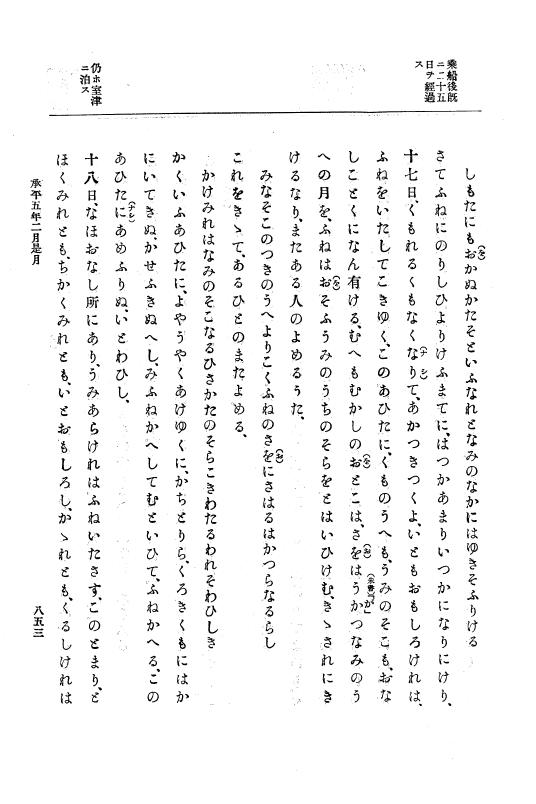 乗船後既
ニ二十五
日ヲ經過
ス
仍ホ室津
ニ泊ス
しもたにもおかぬかたそといふなれとなみのなかにはゆきそふりける
(を)
さてふねにのりしひよりけふまてに、はつかあまりいつかになりにけり、
十七日、くもれるくもなくなりて、あかつきつくよ、いともおもしろけれは、
(ナシ)
ふねをいたしてこきゆく、このあひたに、くものうへも、うみのそこも、おな
しことくになん有ける、むへもむかしのおとこは、さをはうかつなみのう
(を)
(お)
への月を、ふねはおそふうみのうちのそらをとはいひけむ、きゝされにき
(を)
けるなり、またある人のよめるうた、
みなそこのつきのうへよりこくふねのさをにさはるはかつらなるらし
(お)
これをきゝて、あるひとのまたよめる、
かけみれはなみのそこなるひさかたのそらこきわたるわれそわひしき
かくいふあひたに、よやうやくあけゆくに、かちとりら、くろきくもにはか
にいてきぬ、かせふきぬへし、みふねかへしてむといひて、ふねかへる、この
あひたにあめふりぬ、いとわひし、
(ナシ)
十八日、なほおなし所にあり、うみあらけれはふねいたさす、このとまり、と
ほくみれとも、ちかくみれとも、いとおもしろし、かゝれとも、くるしけれは
承平五年二月是月
八五三